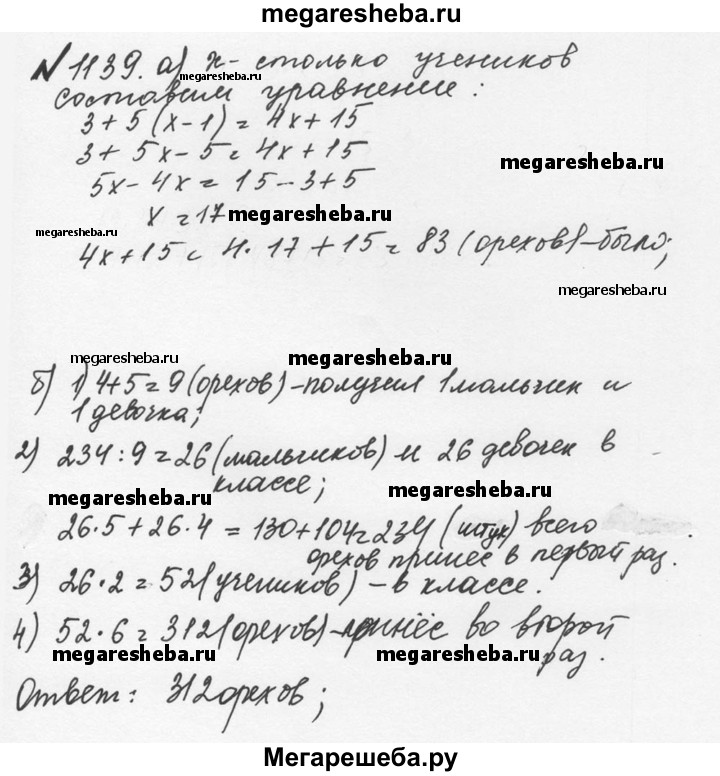 megaresheba.ru
№ 1139. а) х - столько учеников
megaresheba.ru
составим уравнение:
3 + 5 (х - 1) = 4х + 15
3 + 5х - 5 = 4х + 15
megaresheba.ru
5х - 4х = 15 - 3 + 5
х = 17
megaresheba.ru
megaresheba.ru
4х + 15 = 4 · 17 + 15 = 83 (орехов) - было;
megaresheba.ru
megaresheba.ru
megaresheba.ru
б) 1) 4 + 5 = 9 (орехов) - получил 1 мальчик и
1 девочка;
2) 234 : 9 = 26 (мальчиков) и 26 девочек в
классе;
megaresheba.ru
megaresheba.ru
26 · 5 + 26 · 4 = 130 + 104 = 234 (штук) всего
орехов принёс в первый раз.
3) 26 · 2 = 52 (учеников) - в классе.
4) 52 · 6 = 312 (орехов) - принёс во второй
раз.
megaresheba.ru
megaresheba.ru
Ответ: 312 орехов;
Мегарешеба.ру